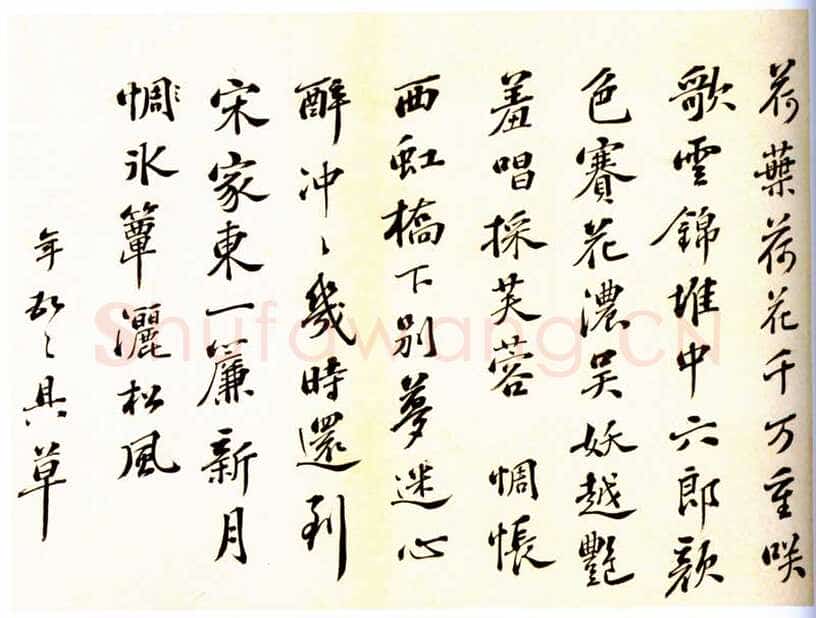 荷葉荷花千万重咲
歌雲錦堆中六郎顔
色賽花濃吴妖越艷
羞唱採芙蓉　惆悵
西虹橋下别夢迷心
醉冲〻幾時還到
宋家東一簾新月
惆氷簟灑松風
年 〻具草
Shufawang.CN